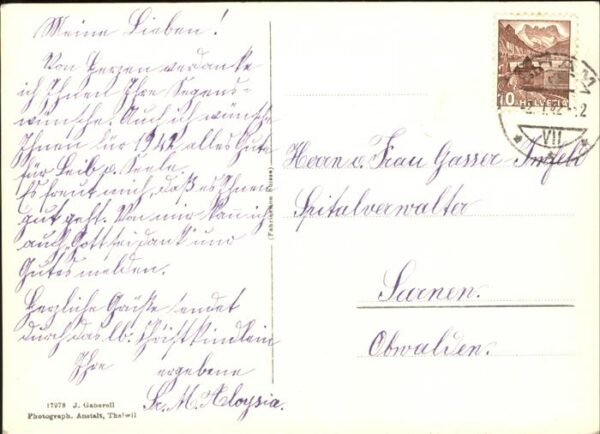 Meine Lieben!
Von Herzen verdanke
ich Ihnen Ihre Segens-
wünsche. Auch ich wünsche
Ihnen für 1942 alles Gute
für Leib u. Seele.
Es freut mich, daß es Ihnen
gut geht. Von mir kann ich
auch Gott sei dank nur
Gutes melden.
Herzliche Grüße sendet
durch das lb. Christkindlein
Ihre ergebene
Sr. M. Aloysia.
17978 J. Gaberell
Photograph. Anstalt, Thalwil
(Fabrication Suisse)
10 HELVETIA
VII
Herrn u. Frau Gasser-
Spitalverwalter
Sarnen.
Obwalden.